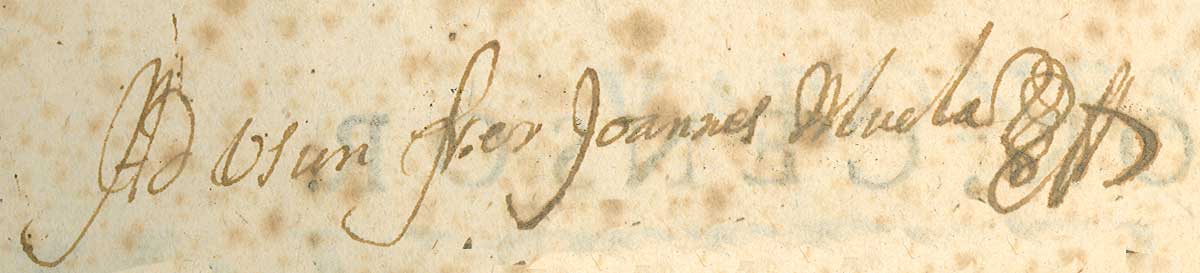 Ad Usun frer Joannes Muela